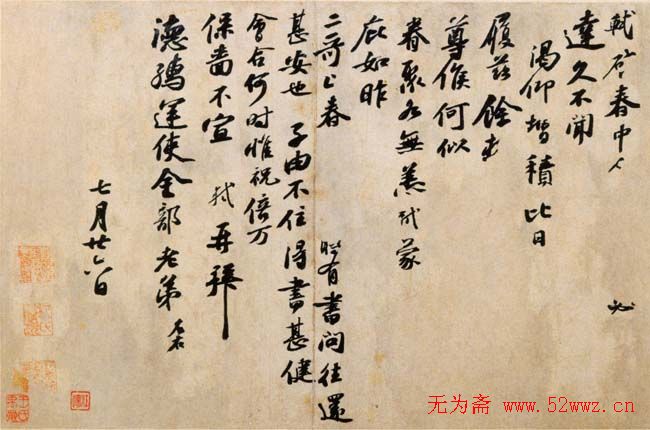 軾啓春中人 必
達久不聞
渴仰增積比日
履茲餘
尊候何似
眷聚各無恙軾蒙
庇如昨
二哥上春 時有書問往還
甚安也 子由不住得書甚健
會合何時惟祝倍万
保嗇不宣 軾再拜
德孺運使金部老弟
七月廿六日
无为斋 www.52wwz.cn